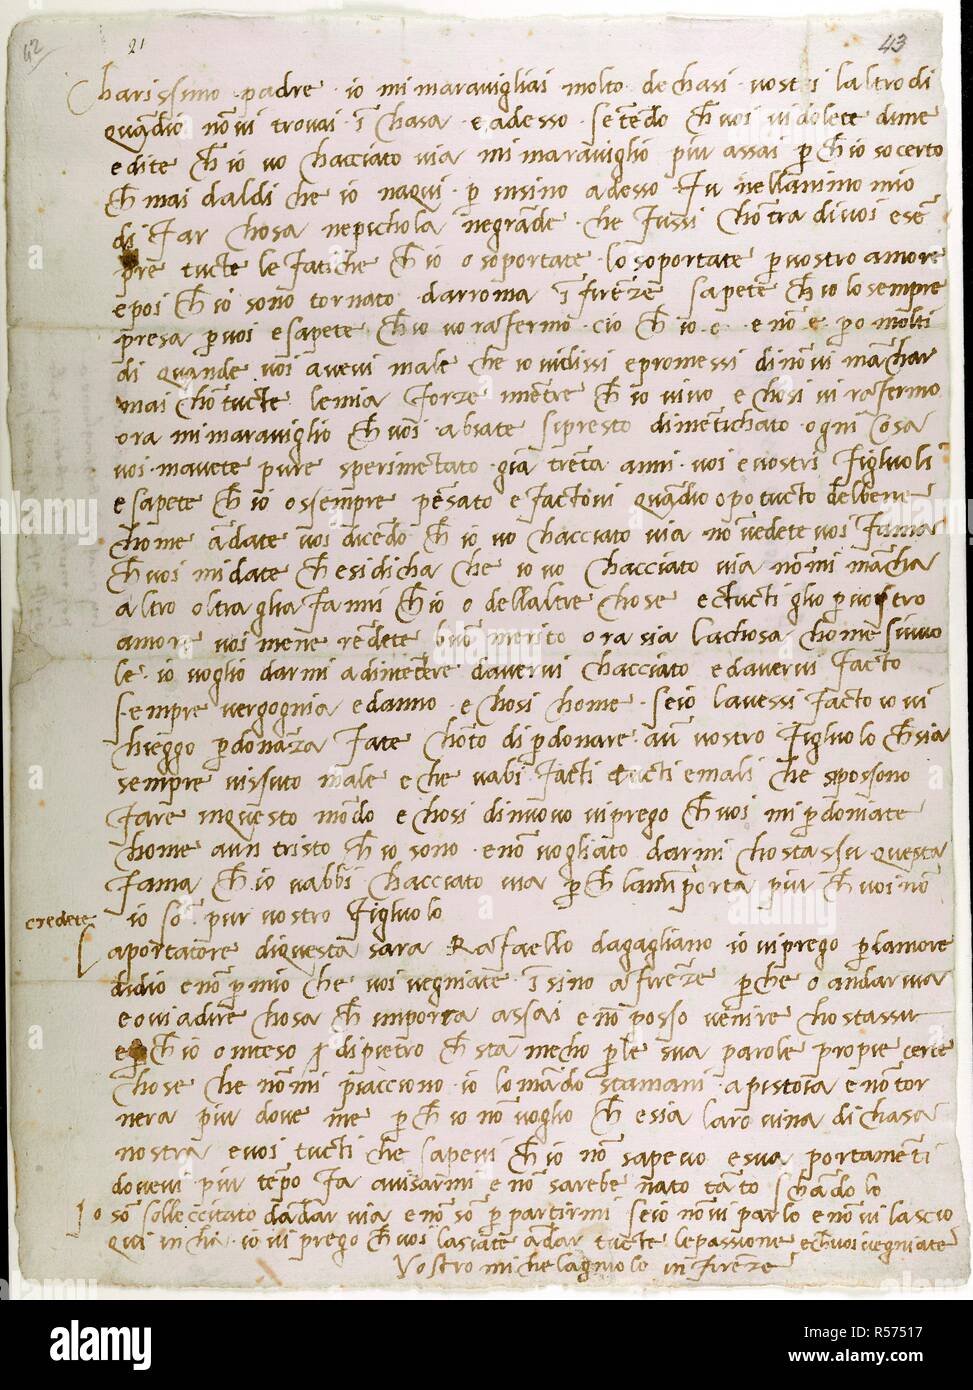 42
21
43
Charissimo padre io mi maravigliai molto de chasi vostri laltro di
quādio nō vi trovai ī chasa e adesso sētēdo ch voi vi dolete di me
e dite ch io vo chacciato via mi maraviglio piu assai p ch io so certo
ch mai dal di che io naqui p insino a desso fu nell animo mio
di far chosa ne pichola ne grāde che fussi chōtra di voi e sē
pre tucte le fatiche ch io o soportate lo soportate p vostro amore
e poi ch io sono tornato da rroma ī firēze sapete ch io lo sempre
presa p voi e sapete ch io vo rafermo ciò ch io o e nō e po molti
di quāde voi avevi male che io vi dissi e promessi di nō vi māchar
mai chō tucte le mia forze mētre ch io vivo e chosi vi rafermo
ora mi maraviglio ch voi abiate si presto dimētichato ogni cosa
voi mavete pure sperimētato gia trēta anni voi e vostri figluoli
e sapete ch io o ssempre pēsato e factovi quādio o potucto del bene
chome ādate voi dicēdo ch io vo chacciato via nō vedete voi fama
ch voi mi date ch e si dicha che io vo chacciato via nō mi mācha
altro oltra gli afanni ch io o dellaltre chose e tucti gli o p vostro
amore voi me ne rēdete buō merito ora sia la chosa chome si vuo
le io voglio darmi a dī tēdere davervi chacciato e davervi facto
sempre vergognia e danno e chosi chome se io lavessi facto io vi
chieggo p donāza fate chōto di p donare a ū vostro figluolo ch sia
sempre vissuto male e che vabi facti tucti e mali che si possono
fare in questo mōdo e chosi di nuovo vi prego ch voi mi p doniate
chome a un tristo ch io sono e nō vogliate darmi chostassu questa
fama ch io vabbi chacciato via p ch lam̄porta piu ch voi nō
credete
io sō pur vostro figluolo
aportatore di questa sara Rafaello da gagliano io vi prego p lamore
di dio e nō p mio che voi vegniate īsino a firēze p che o andar via
e ovi a dire chosa ch importa assai e nō posso venire chostassu
e p ch io o inteso di pietro ch sta mecho p le sua parole proprie certe
chose che nō mi piacciono io lo mādo stamani a pistoia e nō tor
nera piu dove me p ch io nō voglio ch e sia la rovina di chasa
nostra e voi tucti che sapevi ch io nō sapevo e sua portamēti
dovevi piu tēpo fa avisarmi e nō sarebe nato tāto schādolo
Io sō sollecitato dādar via e nō sō p partirmi se io nō vi parlo e nō vi lascio
qui in chi io vi prego ch voi lasciate ādar tucte le passione e ch voi vegniate
Vostro michelagniolo in firēze
alamy
alamy stock photo
Image ID: R57517
www.alamy.com